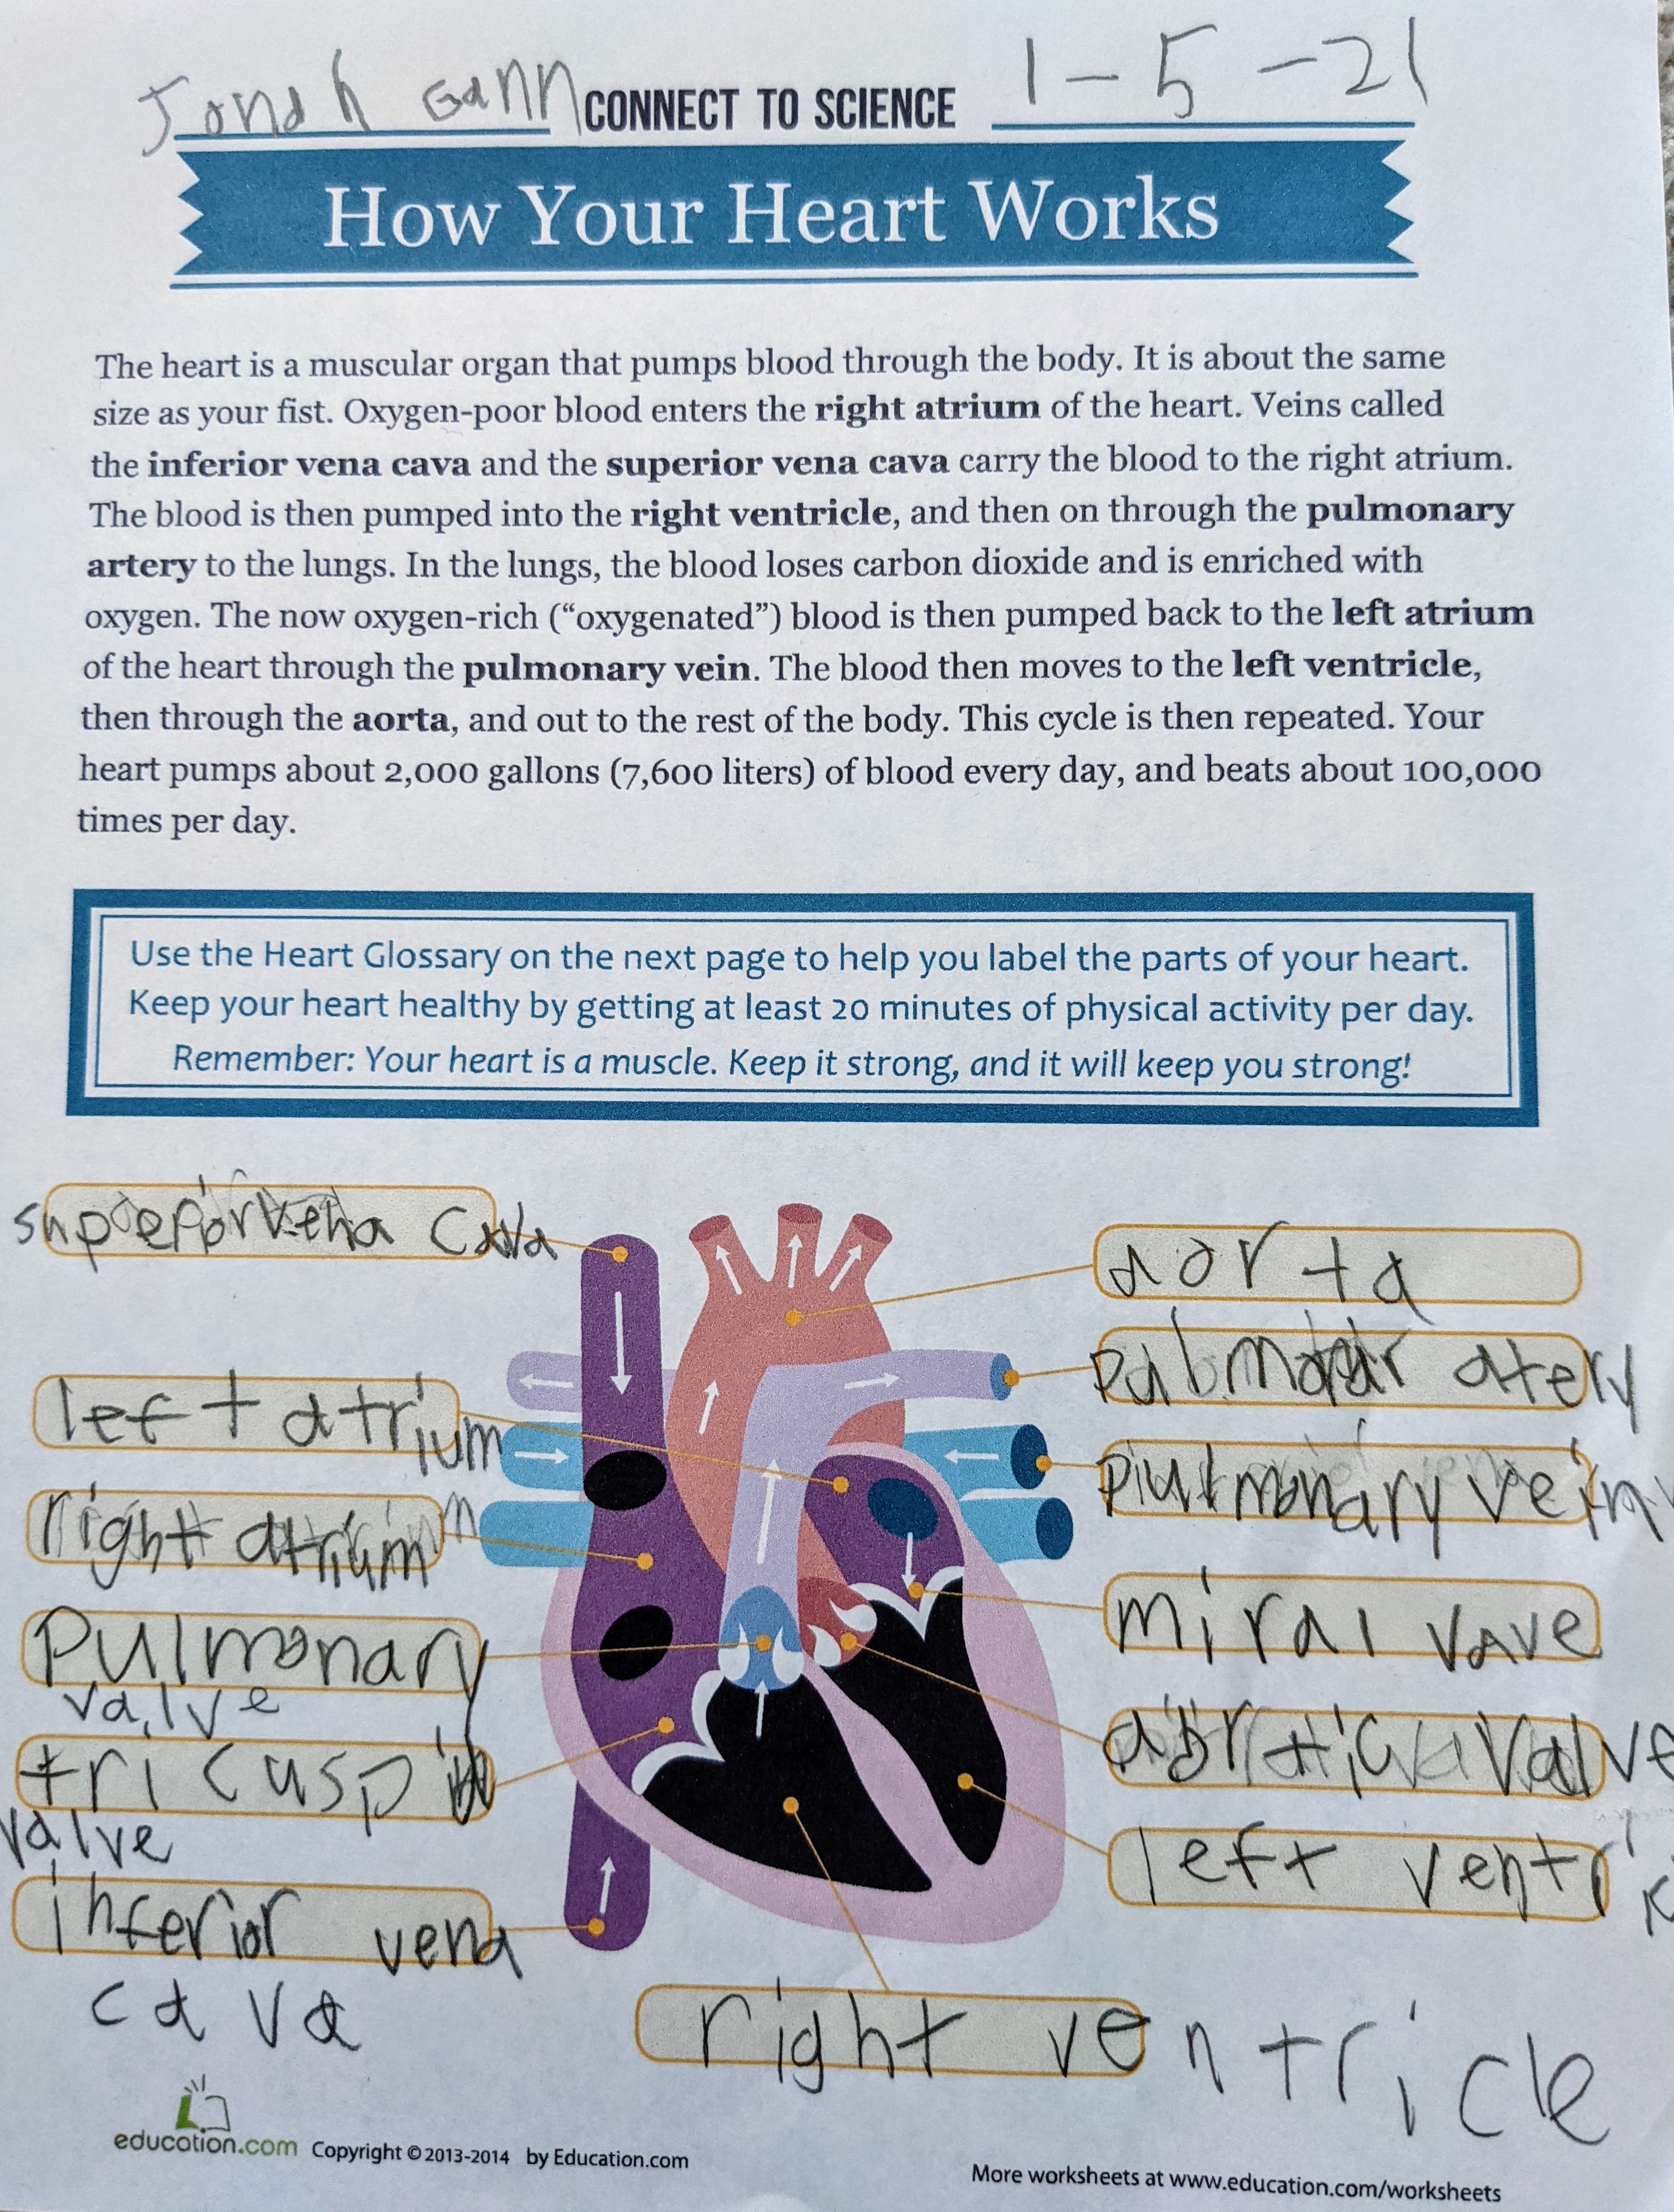 Jonah Gann CONNECT TO SCIENCE 1-5-21
How Your Heart Works
The heart is a muscular organ that pumps blood through the body. It is about the same
size as your fist. Oxygen-poor blood enters the right atrium of the heart. Veins called
the inferior vena cava and the superior vena cava carry the blood to the right atrium.
The blood is then pumped into the right ventricle, and then on through the pulmonary
artery to the lungs. In the lungs, the blood loses carbon dioxide and is enriched with
oxygen. The now oxygen-rich (“oxygenated”) blood is then pumped back to the left atrium
of the heart through the pulmonary vein. The blood then moves to the left ventricle,
then through the aorta, and out to the rest of the body. This cycle is then repeated. Your
heart pumps about 2,000 gallons (7,600 liters) of blood every day, and beats about 100,000
times per day.
Use the Heart Glossary on the next page to help you label the parts of your heart.
Keep your heart healthy by getting at least 20 minutes of physical activity per day.
Remember: Your heart is a muscle. Keep it strong, and it will keep you strong!
cava
left atrium
right atrium
pulmonary
valve
tricuspid
valve
inferior vena
cava
aorta
atery
vein
miral vave
valve
left ventri
right ventricle
education.com Copyright © 2013-2014 by Education.com
More worksheets at www.education.com/worksheets